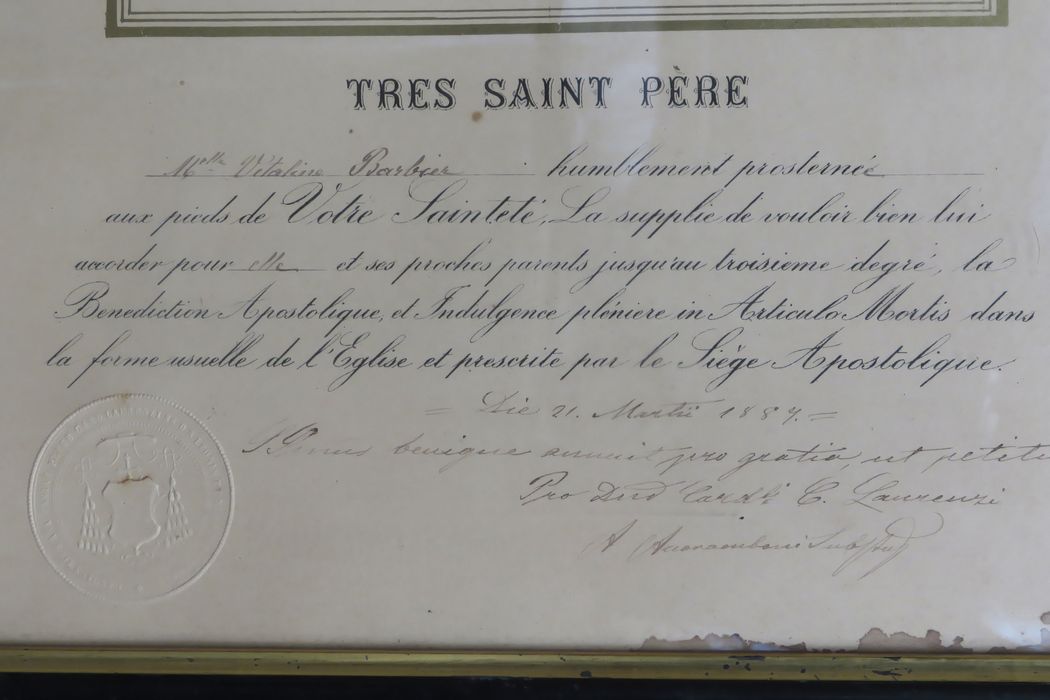 TRES SAINT PÈRE
Melle Vitaline Barbier humblement prosternée
aux pieds de Votre Sainteté, La supplie de vouloir bien lui
accorder pour elle et ses proches parents jusqu'au troisieme degré, la
Benediction Apostolique, et Indulgence plénière in Articulo Mortis dans
la forme usuelle de l'Eglise et prescrite par le Siège Apostolique.
= Die 21. Martii 1887. =
SSmus benigne annuit pro gratia, ut petitu
Pro Dno Card. C. Laurenzi
A